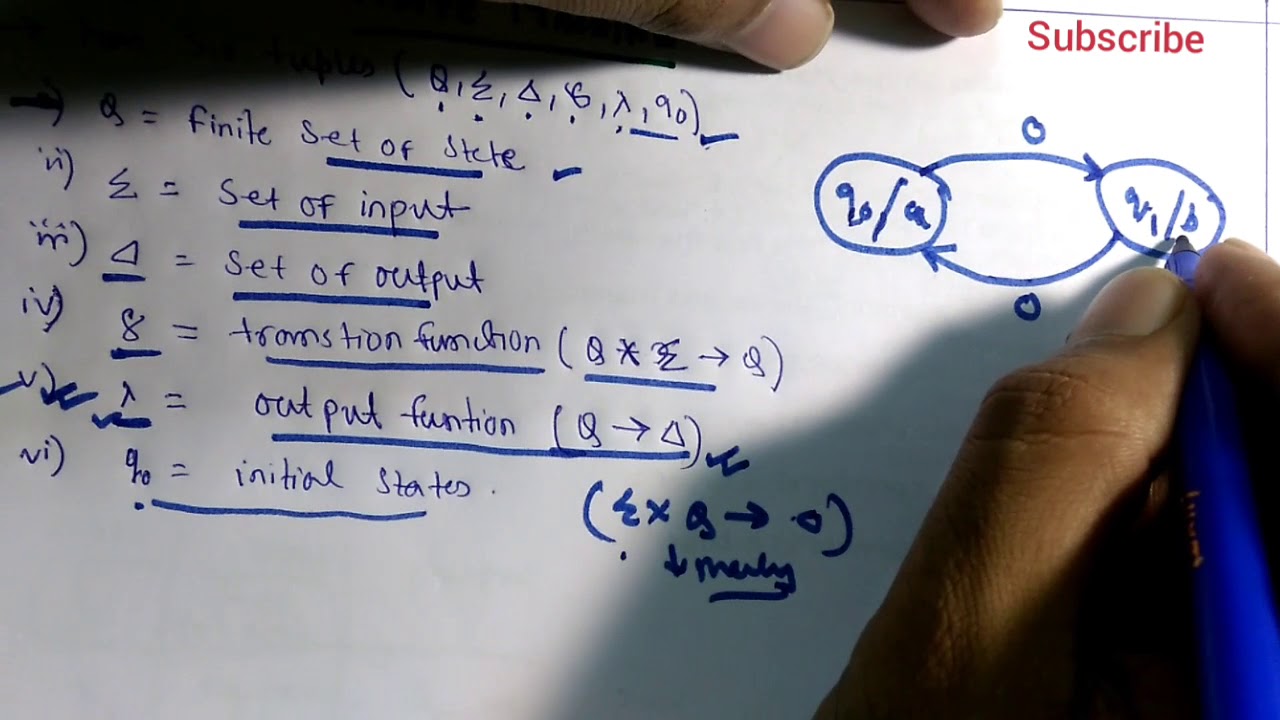 Subscribe
tuples (Q, Σ, Δ, δ, λ, q0)
i) Q = finite set of state
ii) Σ = set of input
iii) Δ = set of output
iv) δ = transtion function (Q * Σ → Q)
v) λ = output funtion (Q → Δ)
vi) q0 = initial states.
(Σ × Q → O)
↓ mealy
0
q0/a
q1/b
0